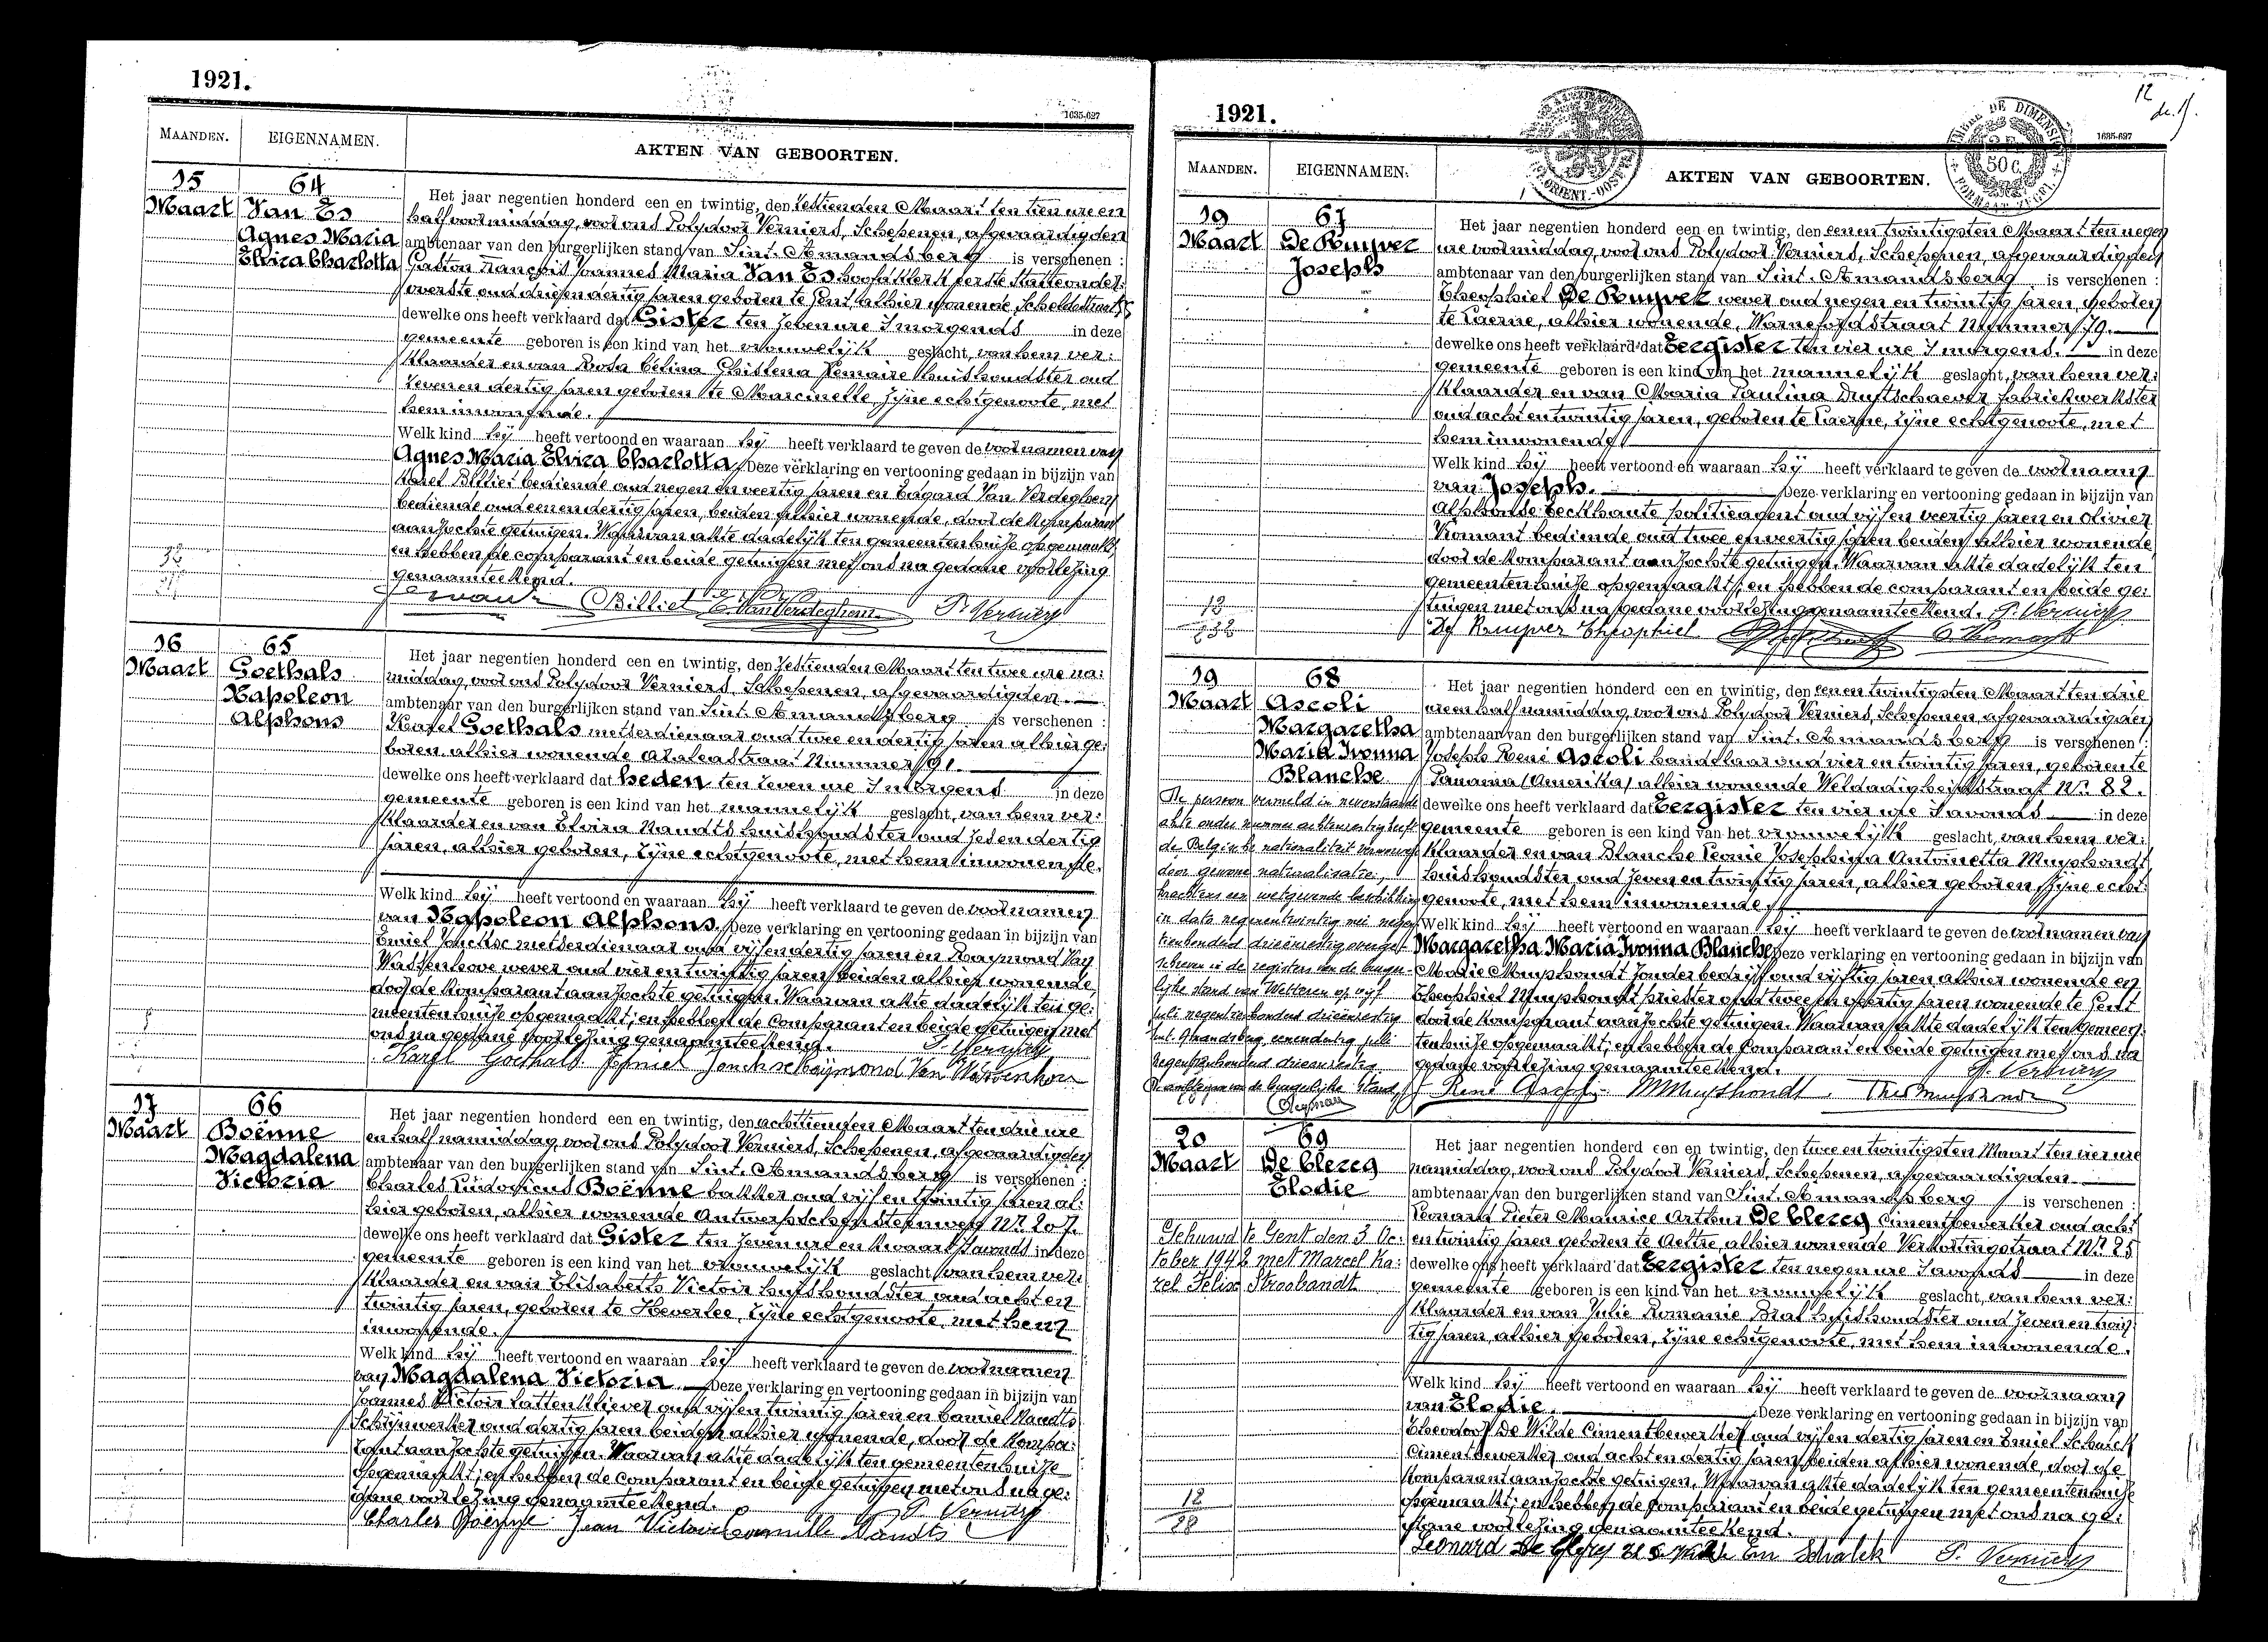 1921.
1635-627
MAANDEN.
EIGENNAMEN.
AKTEN VAN GEBOORTEN.
15
Maart
64
Van Es
Agnes Maria
Elvira Charlotta
Het jaar negentien honderd een en twintig, den zestienden Maart ten tien ure en
half voormiddag, voor ons Polydoor Verniers, Schepenen, afgevaardigden
ambtenaar van den burgerlijken stand van Sint-Amandsberg is verschenen :
Gaston François Joannes Maria Van Es hoofdklerk eerste Statieonder-
overste oud drij en dertig jaren geboren te Gent, alhier wonende Scheldestraat
dewelke ons heeft verklaard dat Gister ten zeven ure 's morgends in deze
gemeente geboren is een kind van het vrouwelijk geslacht, van hem ver:
klaarder en van Rosa Celina Ghislena Lemaire huishoudster oud
zeven en dertig jaren geboren te Marcinelle, zijne echtgenoote, met
hem inwonende.
Welk kind hij heeft vertoond en waaraan hij heeft verklaard te geven de voornamen van
Agnes Maria Elvira Charlotta. Deze verklaring en vertooning gedaan in bijzijn van
Karel Billiet bediende oud negen en veertig jaren en Edgard Van Verdeghem
bediende oud een en dertig jaren, beiden alhier wonende, door de komparant
aanzochte getuigen. Waarvan akte dadelijk ten gemeentenhuize opgemaakt;
en hebben de comparant en beide getuigen met ons na gedane voorlezing
genaamteekend.
Billiet P. Verniers
16
Maart
65
Goethals
Napoleon
Alphons
Het jaar negentien honderd een en twintig, den zestienden Maart ten twee ure na:
middag, voor ons Polydoor Verniers, Schepenen, afgevaardigden
ambtenaar van den burgerlijken stand van Sint-Amandsberg is verschenen :
Karel Goethals metserdienaar oud twee en dertig jaren alhier ge:
boren, alhier wonende Azaleastraat Nummer 91.
dewelke ons heeft verklaard dat heden ten zeven ure 's morgens in deze
gemeente geboren is een kind van het mannelijk geslacht, van hem ver:
klaarder en van Elvira Nandts huishoudster oud zes en dertig
jaren, alhier geboren, zijne echtgenoote, met hem inwonende.
Welk kind hij heeft vertoond en waaraan hij heeft verklaard te geven de voornamen
van Napoleon Alphons. Deze verklaring en vertooning gedaan in bijzijn van
Emiel Jonckse metserdienaar oud vijf en dertig jaren en Raymond Van
Wassenhove wever oud vier en twintig jaren, beiden alhier wonende,
door de komparant aanzochte getuigen. Waarvan akte dadelijk ten ge:
meentenhuize opgemaakt; en hebben de comparant en beide getuigen met
ons na gedane voorlezing genaamteekend. P. Verniers
Karel Goethals Emiel Jonckse Raymond Van Wassenhove
17
Maart
66
Boënne
Magdalena
Victoria
Het jaar negentien honderd een en twintig, den achttienden Maart ten drie ure
en half namiddag, voor ons Polydoor Verniers, Schepenen, afgevaardigden
ambtenaar van den burgerlijken stand van Sint-Amandsberg is verschenen :
Charles Ludovicus Boënne bakker oud vijf en twintig jaren al:
hier geboren, alhier wonende Antwerpschensteenweg Nr. 207.
dewelke ons heeft verklaard dat Gister ten zeven ure en kwaart 's avonds in deze
gemeente geboren is een kind van het vrouwelijk geslacht, van hem ver:
klaarder en van Elisabeth Victoir huishoudster oud acht en
twintig jaren, geboren te Heverlee, zijne echtgenoote, met hem
inwonende.
Welk kind hij heeft vertoond en waaraan hij heeft verklaard te geven de voornamen
van Magdalena Victoria. Deze verklaring en vertooning gedaan in bijzijn van
Joannes Victoir lattenkliever oud vijf en twintig jaren en Camiel Nandts
Schrijnwerker oud dertig jaren beiden alhier wonende, door de kompa:
rant aanzochte getuigen. Waarvan akte dadelijk ten gemeentenhuize
opgemaakt; en hebben de comparant en beide getuigen met ons na ge:
dane voorlezing genaamteekend. P. Verniers
Charles Boënne Jean Victoir Camille Nandts
1921.
12
1635-627
DE DIMENSION
50 C.
MAANDEN.
EIGENNAMEN.
AKTEN VAN GEBOORTEN.
19
Maart
67
De Ruyver
Joseph
Het jaar negentien honderd een en twintig, den een en twintigsten Maart ten negen
ure voormiddag, voor ons Polydoor Verniers, Schepenen, afgevaardigden
ambtenaar van den burgerlijken stand van Sint-Amandsberg is verschenen :
Theophiel De Ruyver wever oud negen en twintig jaren, geboren
te Laerne, alhier wonende, Warnefordstraat Nummer 79.
dewelke ons heeft verklaard dat Eergister ten vier ure 's morgens. in deze
gemeente geboren is een kind van het mannelijk geslacht, van hem ver:
klaarder en van Maria Paulina Duytschaever fabriekwerkster
oud acht en twintig jaren, geboren te Laerne, zijne echtgenoote, met
hem inwonende
Welk kind hij heeft vertoond en waaraan hij heeft verklaard te geven de voornaam
van Joseph. Deze verklaring en vertooning gedaan in bijzijn van
Alphonse Eeckhaute politieagent oud vijf en veertig jaren en Olivier
Romant bediende oud twee en veertig jaren beiden alhier wonende
door de komparant aanzochte getuigen. Waarvan akte dadelijk ten
gemeentenhuize opgemaakt; en hebben de comparant en beide ge:
tuigen met ons na gedane voorlezing genaamteekend. P. Verniers
De Ruyver Theophiel
19
Maart
68
Ascoli
Margaretha
Maria Ivonna
Blanche
Het jaar negentien honderd een en twintig, den een en twintigsten Maart ten drie
uren half namiddag, voor ons Polydoor Verniers, Schepenen, afgevaardigden
ambtenaar van den burgerlijken stand van Sint-Amandsberg is verschenen :
Joseph René Ascoli handelaar oud vier en twintig jaren, geboren te
Panama (Amerika) alhier wonende Weldadigheidstraat Nr. 82.
dewelke ons heeft verklaard dat Eergister ten vier ure 's avonds in deze
gemeente geboren is een kind van het vrouwelijk geslacht, van hem ver:
klaarder en van Blanche Leonie Josephina Antoinetta Muyshondt
huishoudster oud zeven en twintig jaren, alhier geboren, zijne echt:
genoote, met hem inwonende.
Welk kind hij heeft vertoond en waaraan hij heeft verklaard te geven de voornamen van
Margaretha Maria Ivonna Blanche. Deze verklaring en vertooning gedaan in bijzijn van
Marie Muyshondt zonder bedrijf oud vijftig jaren alhier wonende en
Theophiel Muyshondt priester oud twee en veertig jaren wonende te Gent
door de komparant aanzochte getuigen. Waarvan akte dadelijk ten gemeen:
tenhuize opgemaakt; en hebben de comparant en beide getuigen met ons na
gedane voorlezing genaamteekend. P. Verniers
René Ascoli MMuyshondt. Theo Muyshondt
De persoon vermeld in nevenstaande
akte onder nummer achtenzestig heeft
de Belgische nationaliteit verworven
door gewone naturalisatie,
krachtens een wetgevende beschikking
in data negenentwintig mei negen
tienhonderd drieënzestig overge-
schreven in de registers van de burger-
lijke stand van Wetteren op vijf
juli negentienhonderd drieënzestig
Sint-Amandsberg, eenendertig juli
negentienhonderd drieënzestig.
De ambtenaar van de burgerlijke stand,
20
Maart
69
De Clercq
Elodie
Het jaar negentien honderd een en twintig, den twee en twintigsten Maart ten vier ure
namiddag, voor ons Polydoor Verniers, Schepenen, afgevaardigden
ambtenaar van den burgerlijken stand van Sint-Amandsberg is verschenen :
Leonard Pieter Maurice Arthur De Clercq Cimentbewerker oud acht
en twintig jaren geboren te Aeltre, alhier wonende Verkortingstraat Nr. 25
dewelke ons heeft verklaard dat Eergister ten negen ure 's avonds in deze
gemeente geboren is een kind van het vrouwelijk geslacht, van hem ver:
klaarder en van Julie Romanie Bral huishoudster oud zeven en twin:
tig jaren, alhier geboren, zijne echtgenoote, met hem inwonende.
Welk kind hij heeft vertoond en waaraan hij heeft verklaard te geven de voornaam
van Elodie. Deze verklaring en vertooning gedaan in bijzijn van
Theodoor De Wilde Cimentbewerker oud vijf en dertig jaren en Emiel Schalck
Cimentbewerker oud acht en dertig jaren, beiden alhier wonende, door de
komparant aanzochte getuigen. Waarvan akte dadelijk ten gemeentenhuize
opgemaakt; en hebben de comparant en beide getuigen met ons na ge:
dane voorlezing genaamteekend.
Leonard De Clercq Em Schalck P. Verniers
Gehuwd te Gent den 3 Oc:
tober 1942 met Marcel Ka:
rel Felix Stroobandt